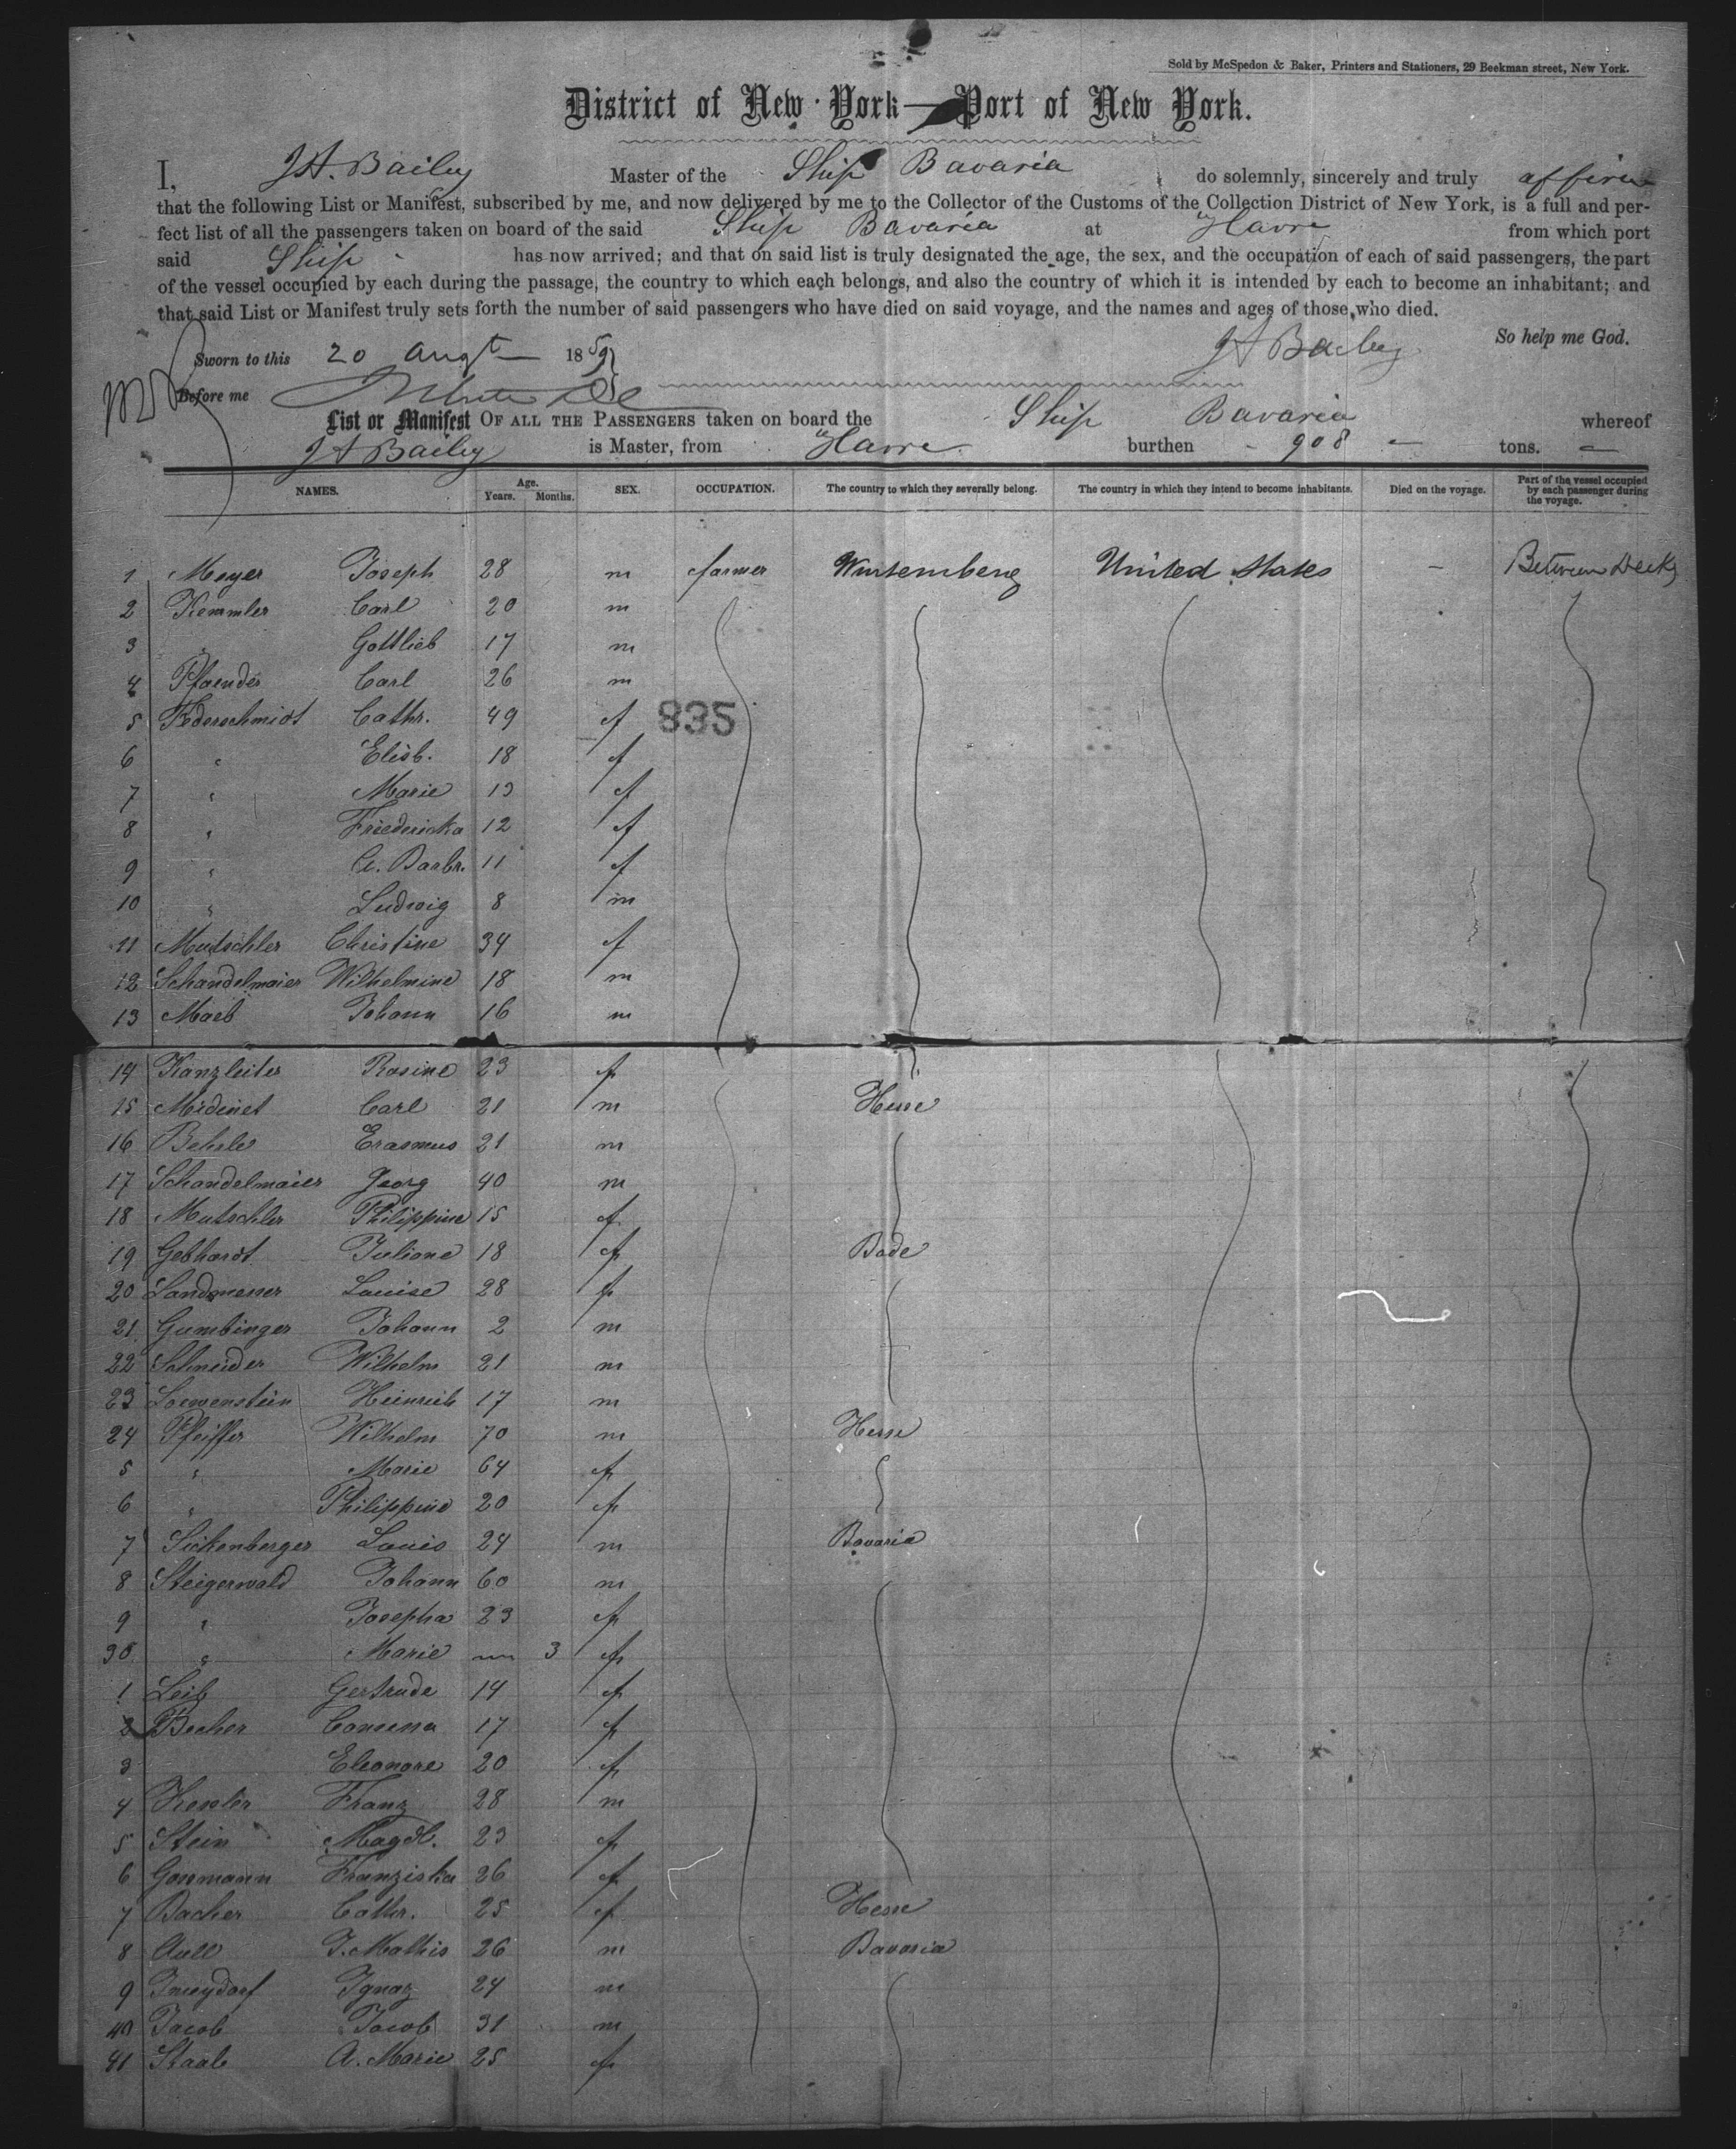 Sold by McSpedon & Baker, Printers and Stationers, 29 Beekman street, New York.
District of New York—Port of New York.
I, J A. Bailey Master of the Ship Bavaria do solemnly, sincerely and truly affirm
that the following List or Manifest, subscribed by me, and now delivered by me to the Collector of the Customs of the Collection District of New York, is a full and per-
fect list of all the passengers taken on board of the said Ship Bavaria at Havre from which port
said Ship has now arrived; and that on said list is truly designated the age, the sex, and the occupation of each of said passengers, the part
of the vessel occupied by each during the passage, the country to which each belongs, and also the country of which it is intended by each to become an inhabitant; and
that said List or Manifest truly sets forth the number of said passengers who have died on said voyage, and the names and ages of those who died.
So help me God.
Sworn to this 20 Augt 1859 J A Bailey
Before me
List or Manifest OF ALL THE PASSENGERS taken on board the Ship Bavaria whereof
J A Bailey is Master, from Havre burthen 908 tons.
NAMES. Age. Years. Months. SEX. OCCUPATION. The country to which they severally belong. The country in which they intend to become inhabitants. Died on the voyage. Part of the vessel occupied by each passenger during the voyage.
1 Meyer Joseph 28 m farmer Wurtemberg United States — Between Decks
2 Kemmler Carl 20 m
3 " Gottlieb 17 m
4 Pfaender Carl 26 m
5 Federschmidt Cathr. 49 f 832
6 " Elisb. 18 f
7 " Marie 13 f
8 " Friedericka 12 f
9 " C. Barbr. 11 f
10 " Ludwig 8 m
11 Mutschler Christine 34 f
12 Schandelmaier Wilhelmine 18 m
13 Johann 16 m
14 Kanzleiter Rosine 23 f
15 Midinet Carl 21 m Hesse
16 Behrle Erasmus 21 m
17 Schandelmaier Georg 40 m
18 Mutschler Philippine 15 f
19 Gebhardt Juliane 18 f Bade
20 Landmesser Louise 28 f
21 Gumbinger Johann 2 m
22 Schneider Wilhelm 21 m
23 Loewenstein Heinrich 17 m
24 Pfeiffer Wilhelm 70 m Hesse
5 " Marie 64 f
6 " Philippine 20 f
7 Sickenberger Louis 24 m Bavaria
8 Steigerwald Johann 60 m
9 " Josepha 23 f
30 " Marie 3 f
1 Leib Gertrude 14 f
2 Becher 17 f
3 Eleonore 20 f
4 Kessler Franz 28 m
5 Stein Magdl. 23 f
6 Gossmann Franziska 26 f
7 Bacher Cathr. 25 f Hesse
8 Aull J. Mathis 26 m Bavaria
9 Ignaz 24 m
40 Jacob Jacob 31 m
41 Staab A. Marie 25 f